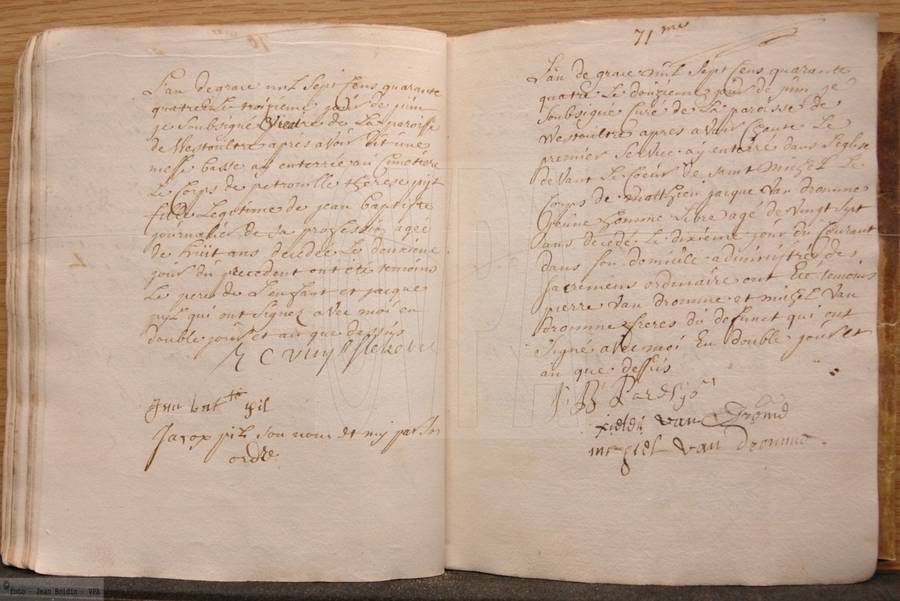 L'an de grace mil Sept Cens quarante
quatre Le troisieme jour de juin
je Soubsigné Vicaire de La paroisse
de Westoultre apres avoir dit une
messe basse ay enterrée au Cimetiere
Le Corps de petronille therese pijl
fille Legitime de jean baptiste
journalier de sa profession agée
de huit ans decedée Le douxieme
jour du precedent ont été temoins
Le pere de L'enfant et jacque
pijl qui ont signez avec moi en
double jour et an que dessus
jan bat^to pil
Jacox pil son nom et my par sor
ordre
71 me
L'an de grace mil Sept Cens quarante
quatre Le douzieme jour de juin je
Soubsigné Curé de La paroisse de
Westoultre apres avoir Chanté Le
premier Service ay enterré dans L'eglise
devant Le Coeur de Saint michel Le
Corps de matthieu jacque Van dromme
jeune homme Libre agé de Vingt Sept
ans decedé Le dixieme jour du Courant
dans son domicile administrés des
sacremens ordinaire ont été temoins
pierre Van dromme et michel Van
dromme freres du defunct qui ont
Signé avec moi En double jour et
an que dessus
van
migiel van dromme.
foto - Jean Boidin - VPA